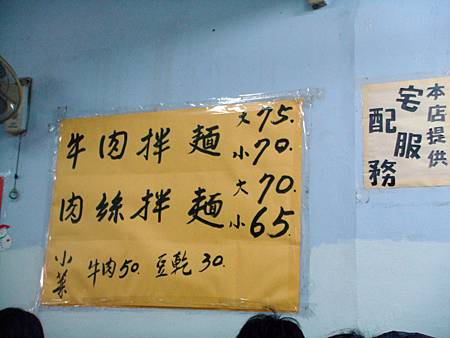 牛肉拌麵 大75.
小70.
肉絲拌麵 大70.
小65.
小菜 牛肉50. 豆乾30.
本店提供
宅配服務